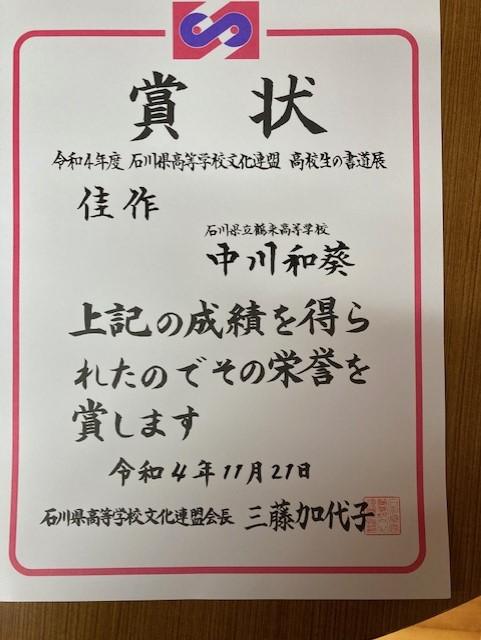 賞状
令和4年度 石川県高等学校文化連盟 高校生の書道展
佳作
石川県立鶴来高等学校
中川和葵
上記の成績を得ら
れたのでその栄誉を
賞します
令和4年11月21日
石川県高等学校文化連盟会長 三藤加代子